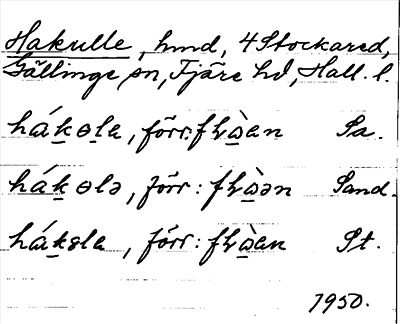 Hakulle, hmd, 4 Stockared,
Gällinge sn, Fjäre hd, Hall. l.
hák ɵla, förr: flɑ̀ɑn Sa.
hák ɵlə, förr: flɑ̀ən Sand.
hákɵla, förr: flɑ̀ɑn St.
1950.